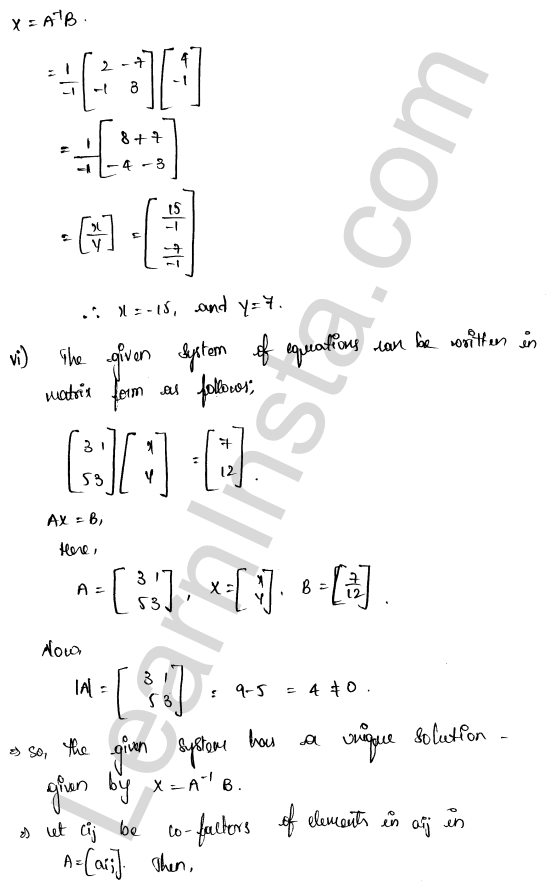 X = A⁻¹B.
= 1/-1 [2 -7; -1 3] [4; -1]
= 1/-1 [8 + 7; -4 -3]
= [x; y] = [15/-1; -7/-1]
∴ x = -15, and y = 7.
vi) The given system of equations can be written in
matrix form as follows;
[3 1; 5 3] [x; y] = [7; 12].
AX = B,
Here,
A = [3 1; 5 3], X = [x; y], B = [7; 12].
Now,
|A| = [3 1; 5 3] = 9-5 = 4 ≠ 0.
⇒ So, the given system has a unique solution -
given by X = A⁻¹ B.
⇒ let cij be co-factors of elements in aij in
A = [aij]. Then,
LearnInsta.com